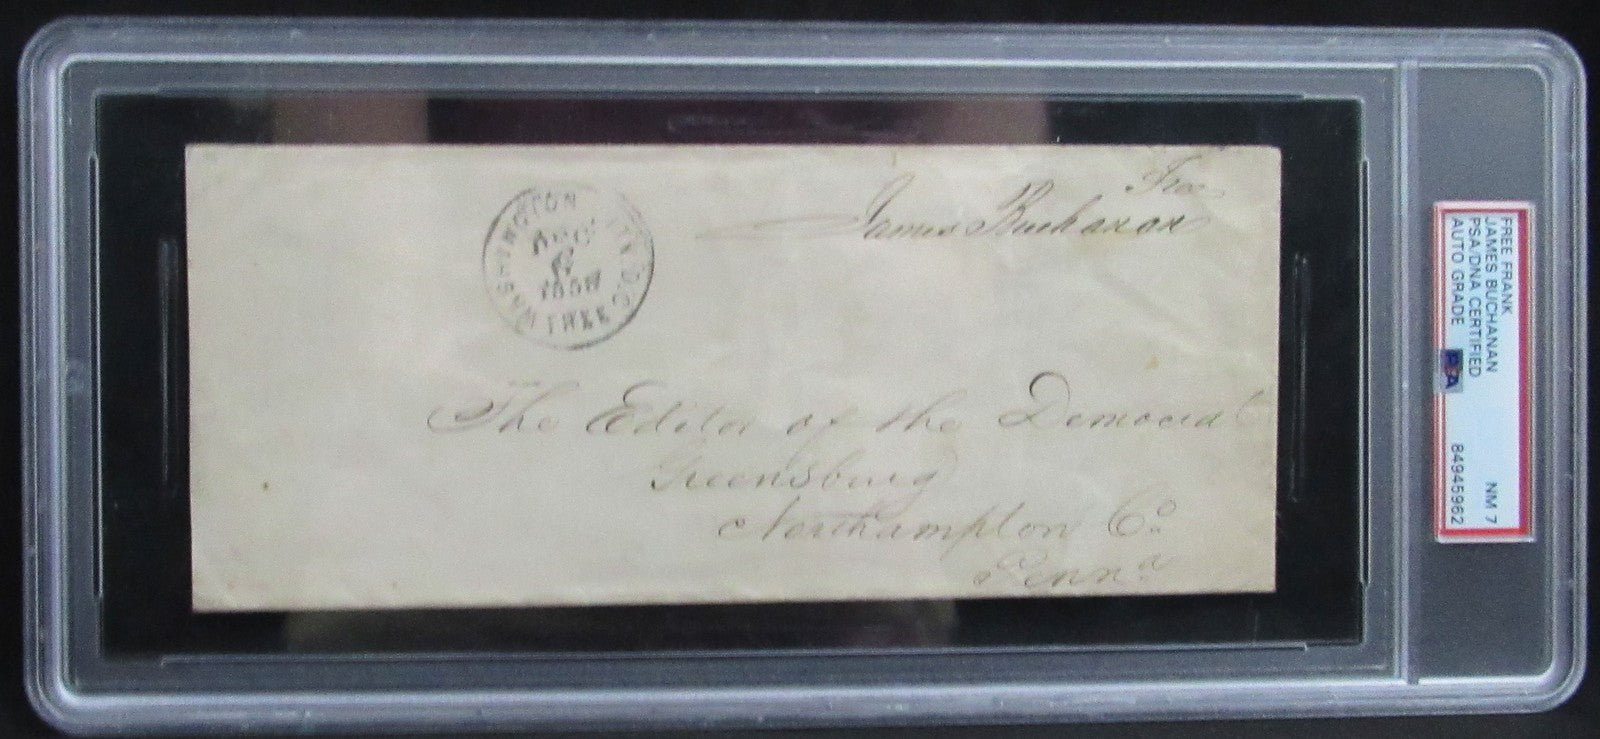 Free
James Buchanan
WASHINGTON CITY D.C.
1858
FREE
The Editor of the Democrat
Greensburg
Northampton Co
Penna
FREE FRANK
JAMES BUCHANAN NM 7
PSA/DNA CERTIFIED
AUTO GRADE PSA 84945962